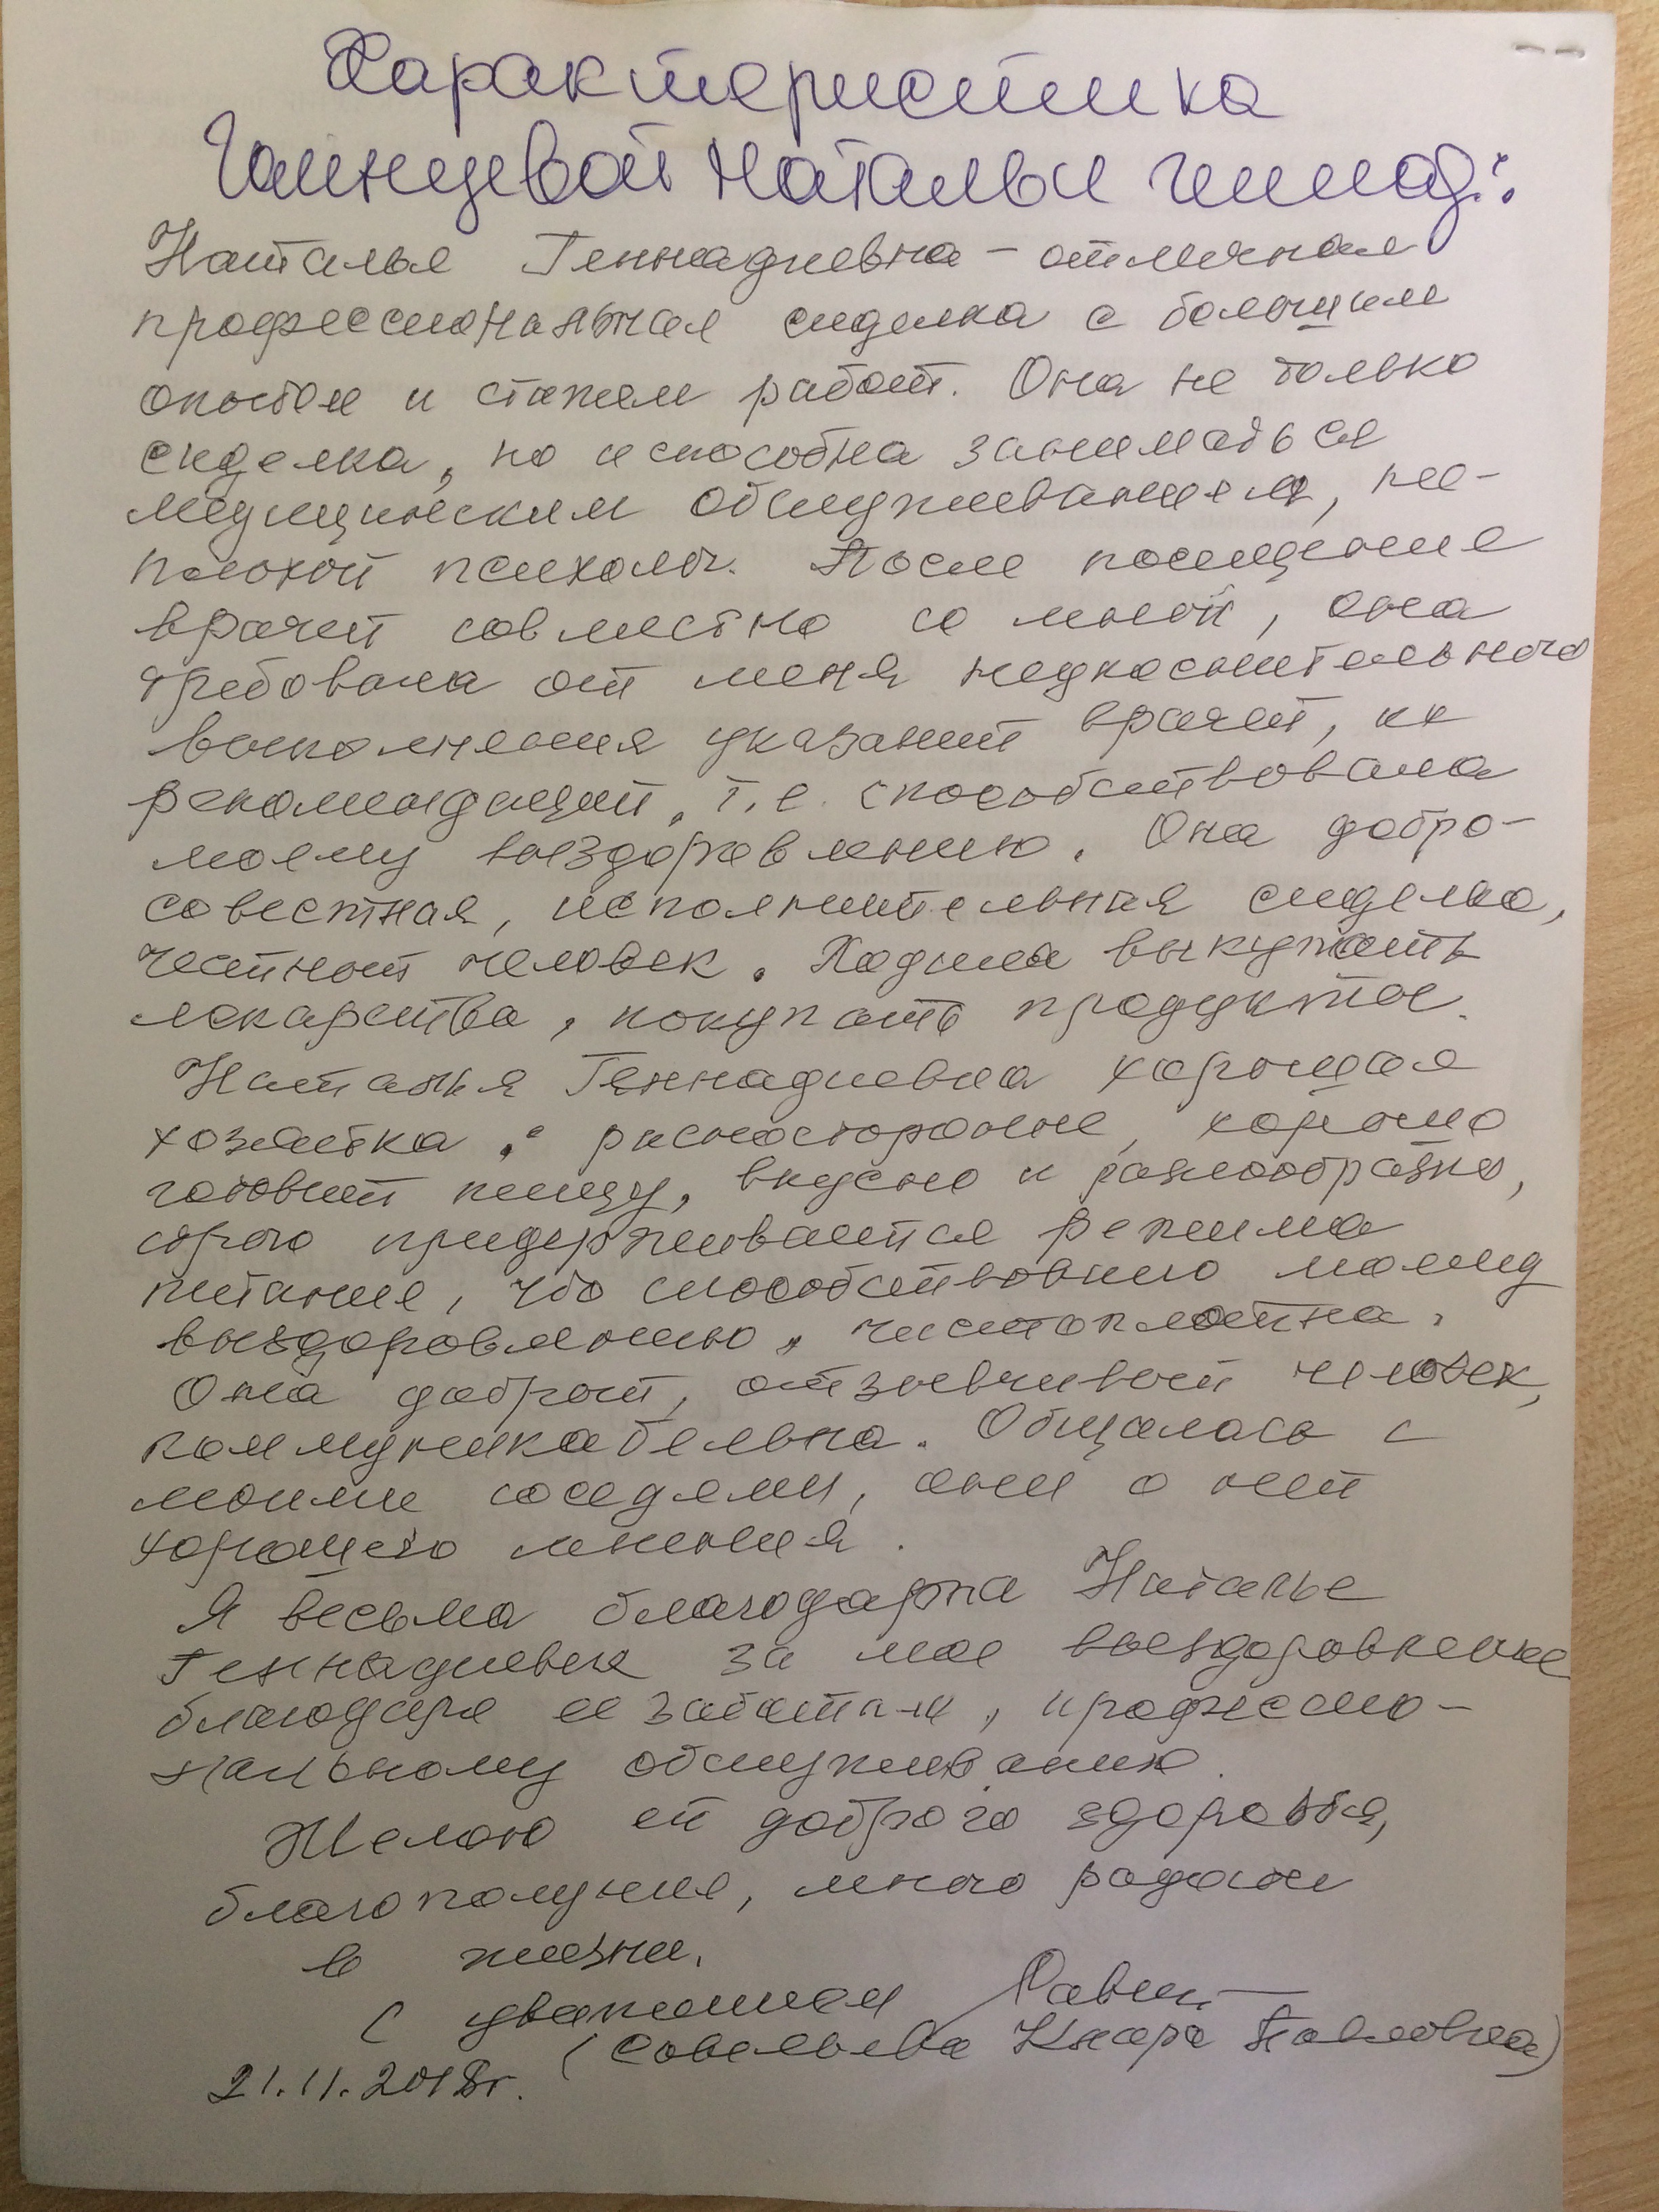 Характеристика
Натальи Геннад.:
Наталья Геннадиевна – отличная
профессиональная сиделка с большим
опытом и стажем работ. Она не только
сиделка, но и способна заниматься
медицинским обслуживанием, не-
плохой психолог. После посещения
врачей совместно со мной, она
требовала от меня неукоснительного
выполнения указаний врачей, их
рекомендаций, т.е. способствовала
моему выздоровлению. Она добро-
совестная, исполнительная сиделка,
честный человек. Ходила выкупать
лекарства, покупать продукты.
Наталья Геннадиевна хорошая
хозяйка: разносторонне, хорошо
готовит пищу, вкусно и разнообразно,
строго придерживается режима
питания, что способствовало моему
выздоровлению, чистоплотна.
Она добрый, отзывчивый человек,
коммуникабельна. Общалась с
моими соседями, они о ней
хорошего мнения.
Я весьма благодарна Наталье
Геннадиевне за мое выздоровление
благодаря ее заботам, професссио-
нальному обслуживанию.
Желаю ей доброго здоровья,
благополучия, много радости
в жизни.
С уважением
(Савельева Клара Павловна)
21.11.2018г.